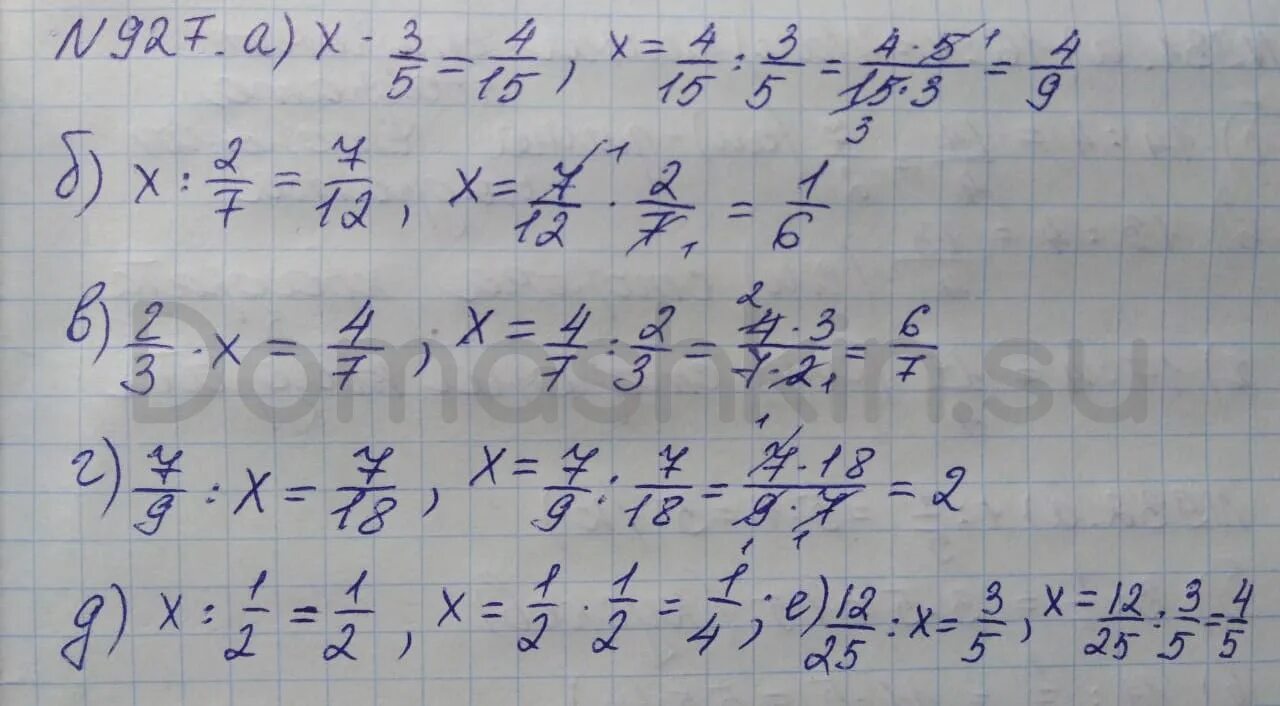 N 927. а) x · 3/5 = 4/15, x = 4/15 : 3/5 = 4·5 1/15·3 3 = 4/9
б) x : 2/7 = 7/12, x = 7 1/12 · 2/7 1 = 1/6
в) 2/3 · x = 4/7, x = 4/7 : 2/3 = 2 4·3/7·2 1 = 6/7
г) 7/9 : x = 7/18, x = 7/9 : 7/18 = 1 7·18/9·7 1 1 = 2
д) x : 1/2 = 1/2, x = 1/2 · 1/2 = 1/4; е) 12/25 : x = 3/5, x = 12/25 : 3/5 = 4/5
Domashkin.su